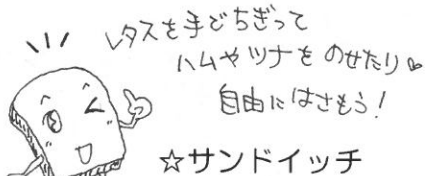 レタスを手でちぎって
ハムやツナをのせたり♥
自由にはさもう！
☆サンドイッチ